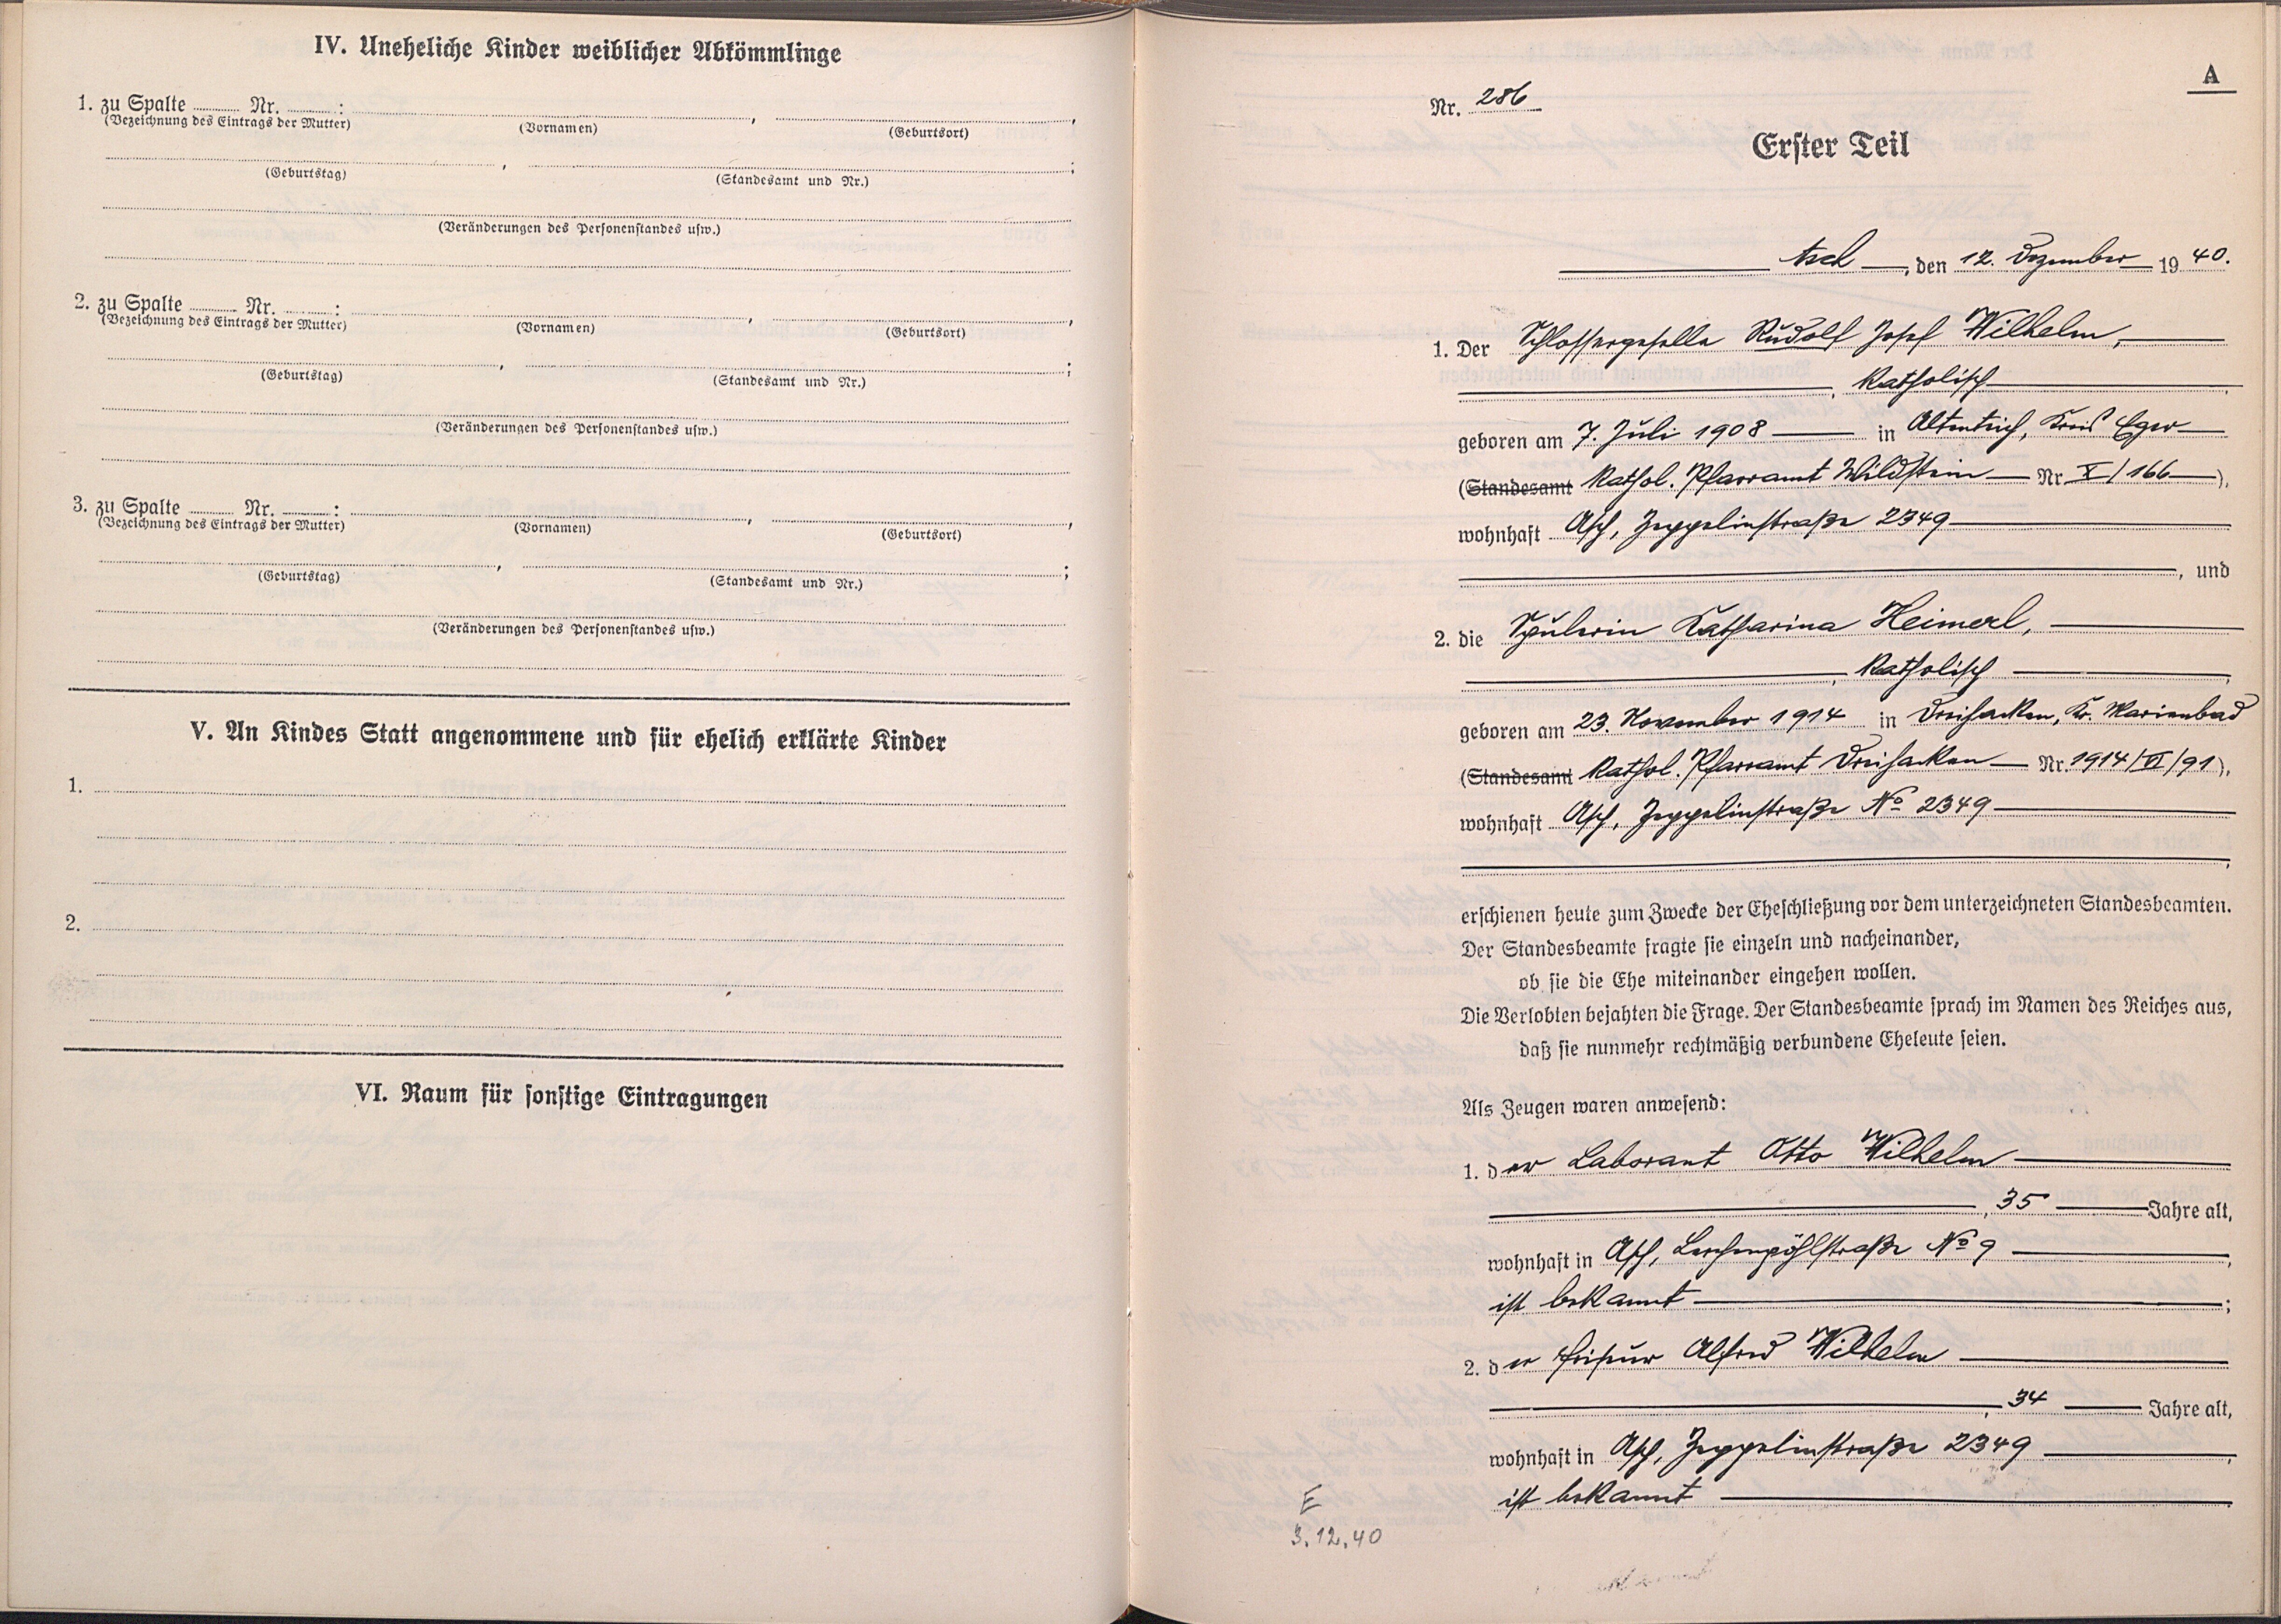 IV. Uneheliche Kinder weiblicher Abkömmlinge
1. zu Spalte ........ Nr. ........ : ........ , ........ ,
(Bezeichnung des Eintrags der Mutter) (Vornamen) (Geburtsort)
........ , ........ ;
(Geburtstag) (Standesamt und Nr.)
(Veränderungen des Personenstandes usw.)
2. zu Spalte ........ Nr. ........ : ........ , ........ ,
(Bezeichnung des Eintrags der Mutter) (Vornamen) (Geburtsort)
........ , ........ ;
(Geburtstag) (Standesamt und Nr.)
(Veränderungen des Personenstandes usw.)
3. zu Spalte ........ Nr. ........ : ........ , ........ ,
(Bezeichnung des Eintrags der Mutter) (Vornamen) (Geburtsort)
........ , ........ ;
(Geburtstag) (Standesamt und Nr.)
(Veränderungen des Personenstandes usw.)
V. An Kindes Statt angenommene und für ehelich erklärte Kinder
1.
2.
VI. Raum für sonstige Eintragungen
A
Nr. 286
Erster Teil
Asch, den 12. Dezember 1940.
1. Der Schlossergeselle Rudolf Josef Wilhelm,
, katholisch
geboren am 7. Juli 1908 in Altenteich, Kreis Eger
(Standesamt Kathol. Pfarramt Wildstein Nr. X/166),
wohnhaft Asch, Zeppelinstraße 2349
, und
2. die Spulerin Katharina Heimerl,
, katholisch
geboren am 23. November 1914 in Dreihacken, Kr. Marienbad
(Standesamt Kathol. Pfarramt Dreihacken Nr. 1914/VI/91),
wohnhaft Asch, Zeppelinstraße No 2349
erschienen heute zum Zwecke der Eheschließung vor dem unterzeichneten Standesbeamten.
Der Standesbeamte fragte sie einzeln und nacheinander,
ob sie die Ehe miteinander eingehen wollen.
Die Verlobten bejahten die Frage. Der Standesbeamte sprach im Namen des Reiches aus,
daß sie nunmehr rechtmäßig verbundene Eheleute seien.
Als Zeugen waren anwesend:
1. der Laborant Otto Wilhelm
, 35 Jahre alt,
wohnhaft in Asch, Lerchenpöhlstraße No 9
ist bekannt ;
2. der Friseur Alfred Wilhelm
, 34 Jahre alt,
wohnhaft in Asch, Zeppelinstraße 2349
ist bekannt
E
3.12.40